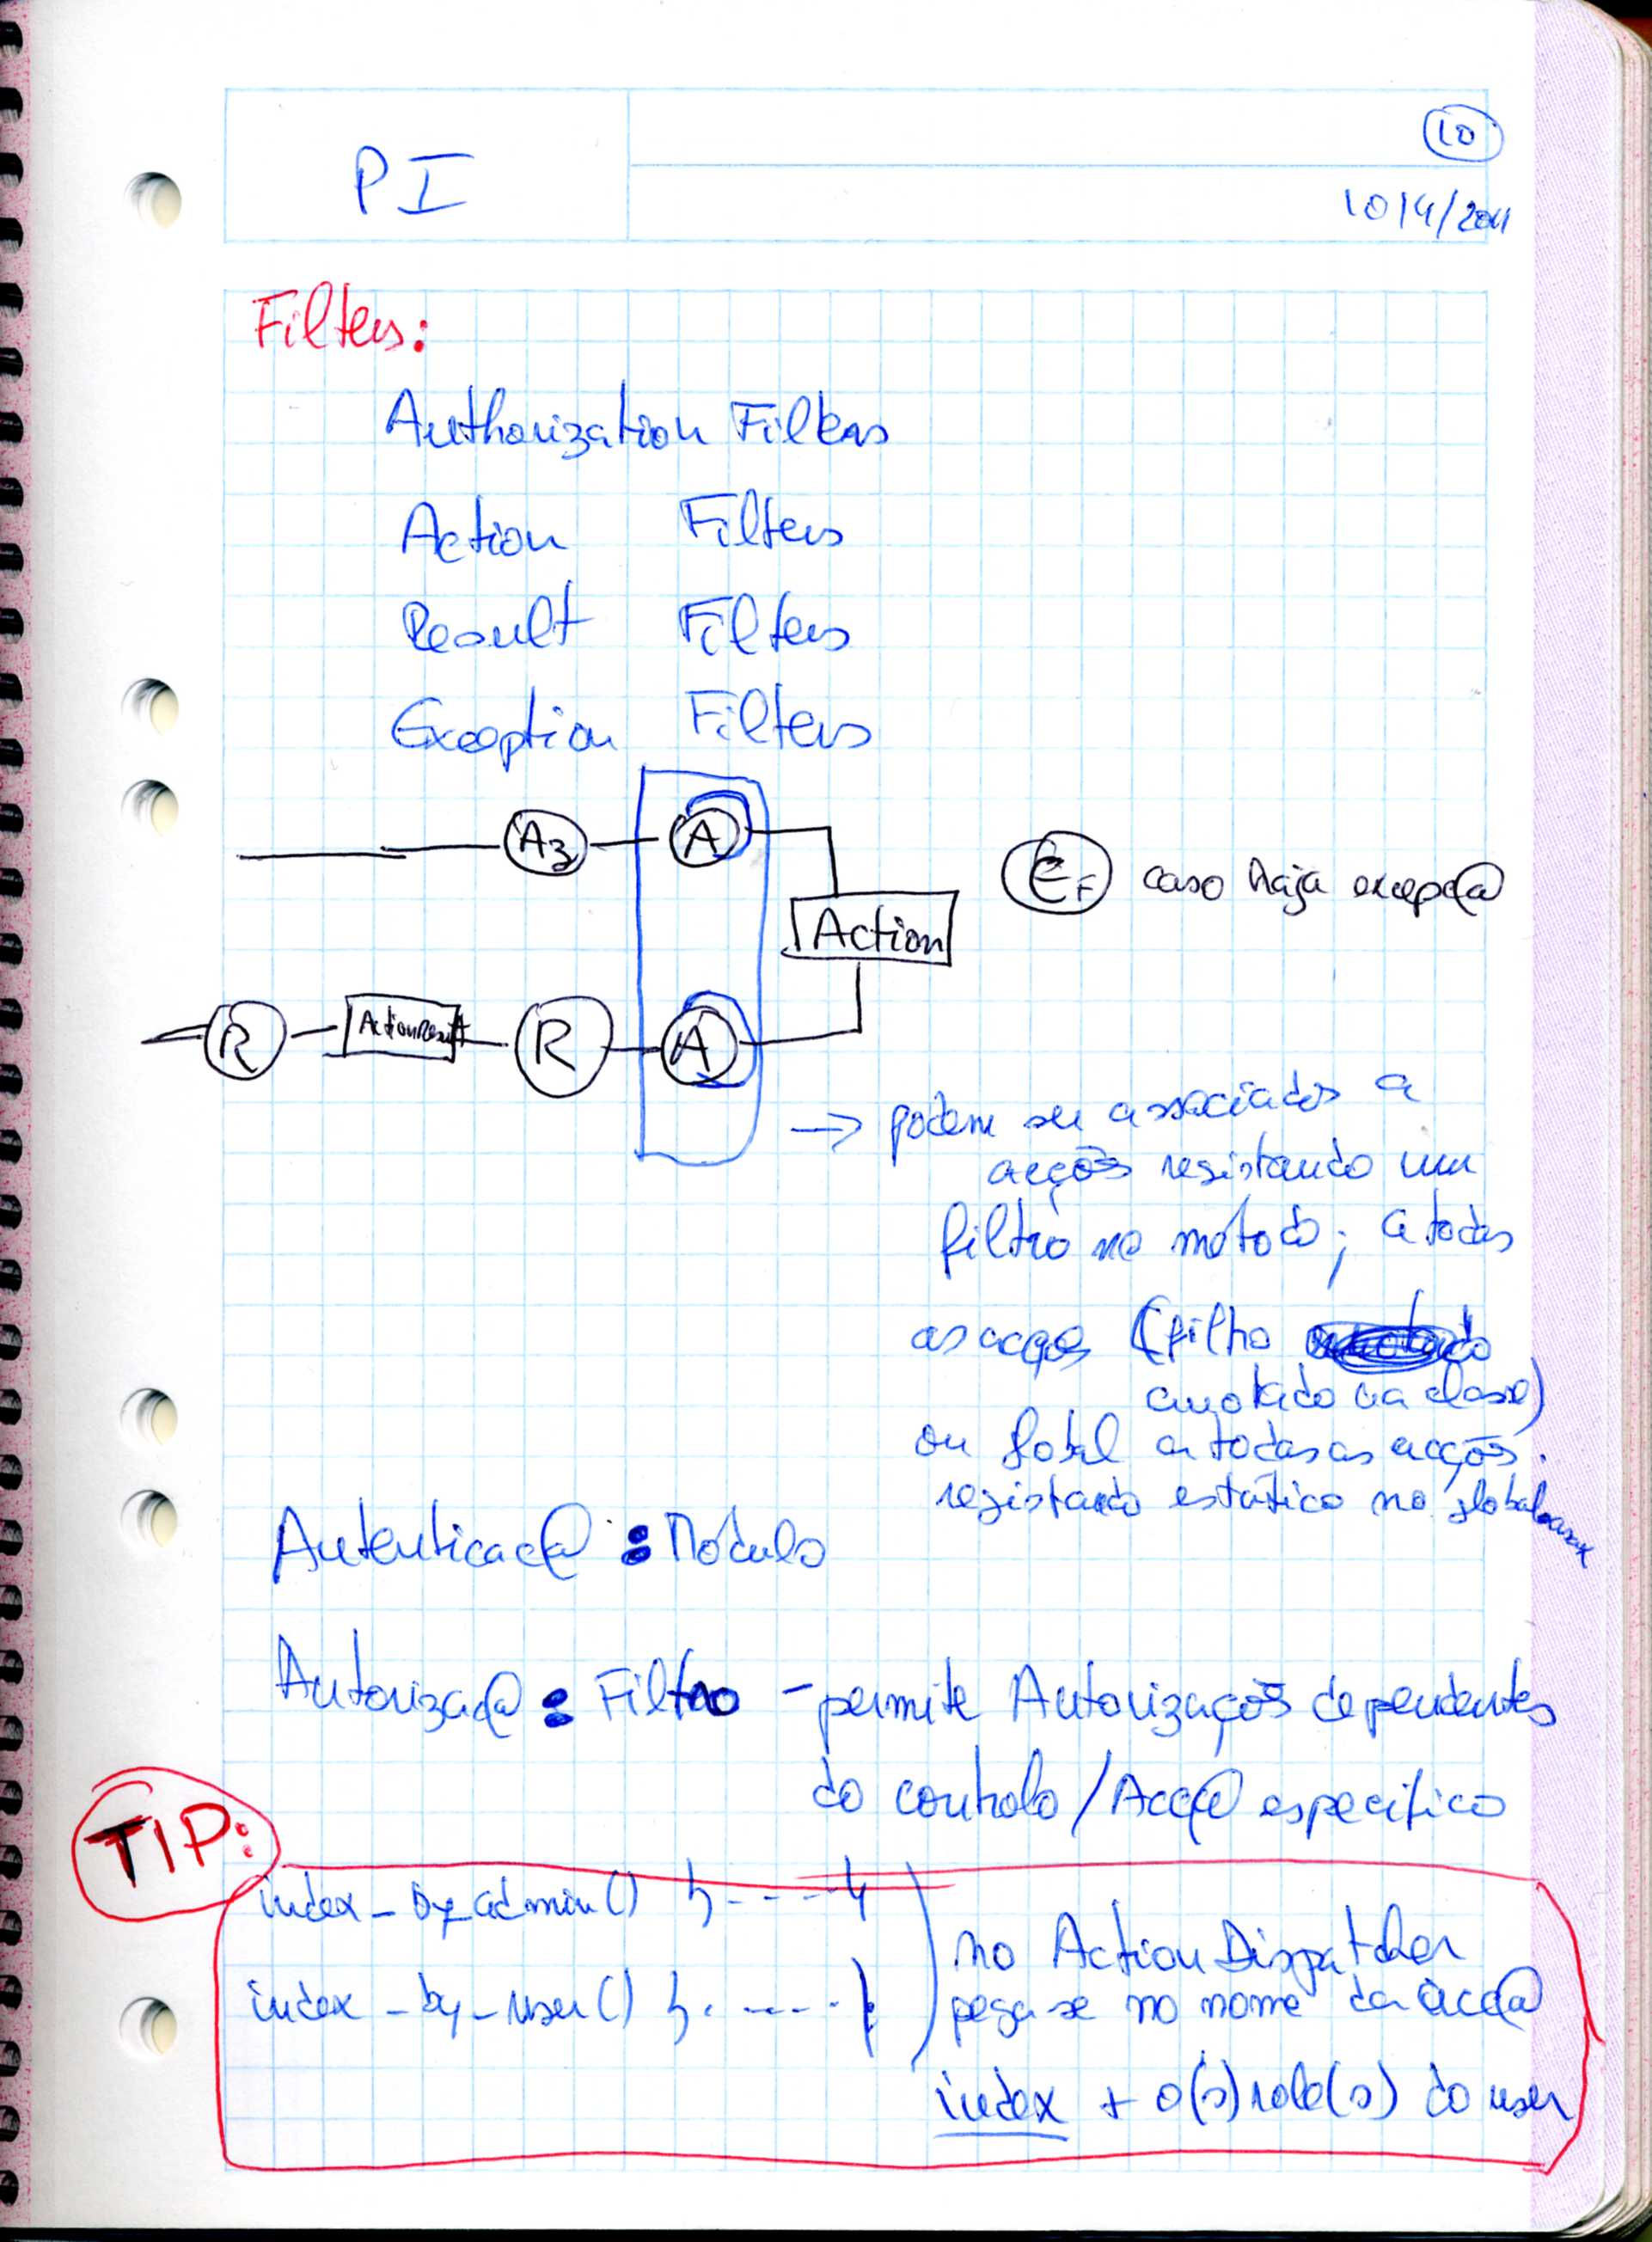 PI
10
10/4/2011
Filters:
Authorization Filters
Action Filters
Result Filters
Exception Filters
Az
A
Action
EF caso haja excepç@
R
ActionResult
R
A
→ podem ser associados a
acções resistando um
filtro no método; a todas
as acções (filtro
anotado na classe)
ou global a todas as acções.
registando estático no global.asax
Autenticaç@ : Módulo
Autorizaç@ : Filtro - permite Autorizações dependentes
do controlo/Acç@ especifico
TIP:
index_by_admin() {----}
index_by_user() {.----.}
no ActionDispatcher
pega-se no nome da acç@
index + o(s) role(s) do user